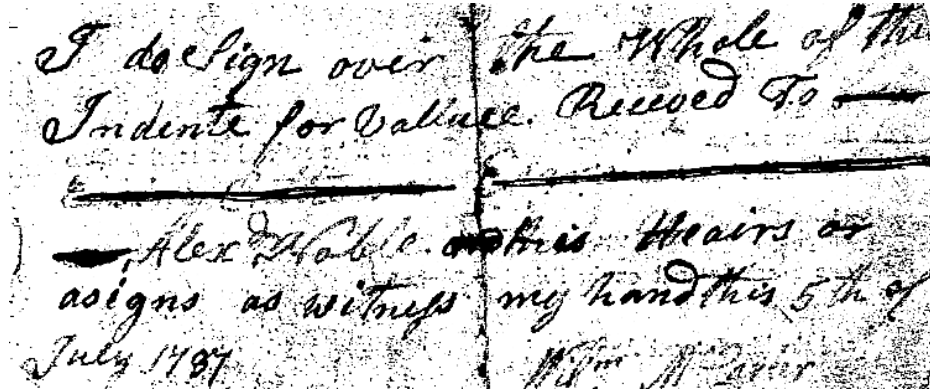 I do Sign over the Whole of the
Indente for Valluee Receved To
Alexdr Noble and his Heairs or
asigns as witness my hand this 5th of
July 1787 Wilm